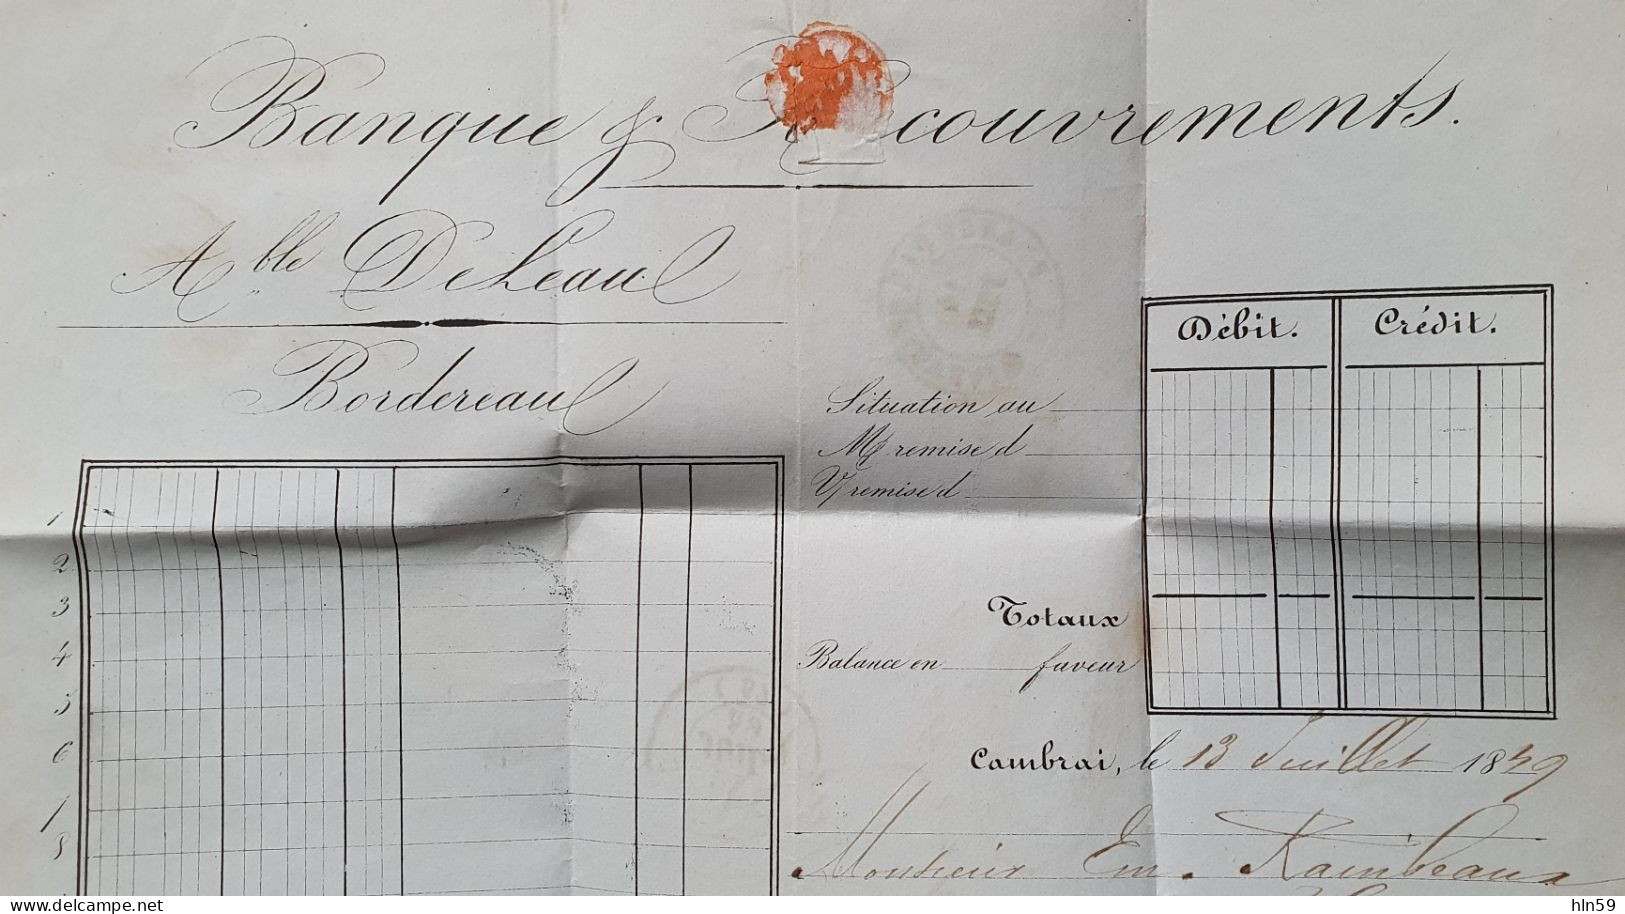 Banque & Recouvrements.
A.ble DeLeau
Bordereau
Débit. Crédit.
Situation au
M/ remise d
V/ remise d
1
2
3
4
5
6
7
8
Totaux
Balance en faveur
Cambrai, le 13 Juillet 1849
Monsieur Em. Rambeaux
delcampe.net
hln59